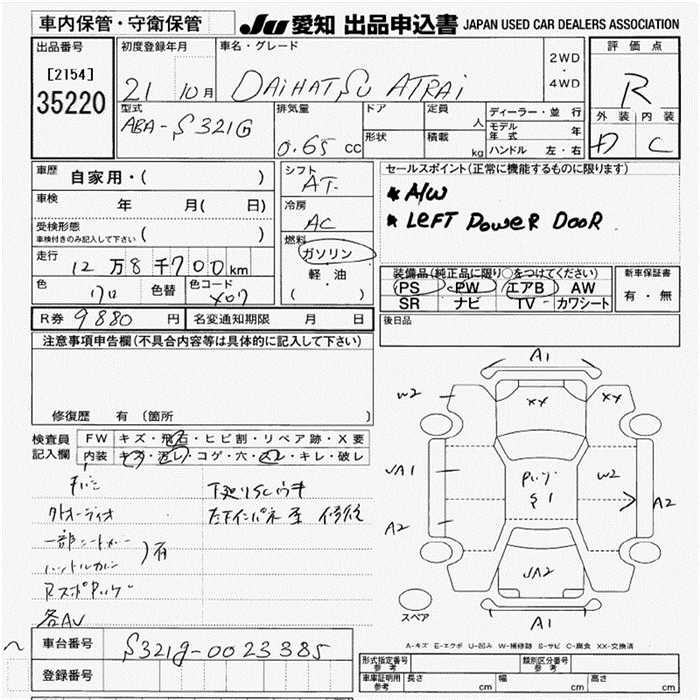 車内保管・守衛保管
JU 愛知 出品申込書 JAPAN USED CAR DEALERS ASSOCIATION
出品番号
[2154]
35220
初度登録年月
21 10月
車名・グレード
DAIHATSU ATRAI
2WD
・
4WD
評価点
R
外装 内装
D C
型式
ABA-S321G
排気量
0.65 cc
ドア
定員
人
形状
積載
kg
ディーラー・並行
モデル年式 年
ハンドル 左・右
車歴
自家用・( )
車検
年 月( 日)
受検形態
車検付きのみ記入して下さい ( )
走行
12万8千700km
色
色替
色コード
X07
シフト
AT
冷房
AC
燃料
ガソリン
軽・油
( )
セールスポイント(正常に機能するものに限ります)
* A/W
* LEFT POWER DOOR
装備品(純正品に限り○をつけてください)
PS PW エアB AW
SR ナビ TV カワシート
新車保証書
有・無
R券 9880 円
名変通知期限 月 日
後日品
注意事項申告欄(不具合内容等は具体的に記入して下さい)
修復歴 有 〔箇所
検査員
記入欄
FW キズ・飛石・ヒビ割・リペア跡・X要
内装 キズ・汚レ・コゲ・穴・スレ・キレ・破レ
下廻りSCウキ
外オーディオ
左下インパネ 至 修復
一部シートカバー
ハンドルカバー
)有
各AU
A1
W2
XX
XX
A1
W2
A2
A2
S1
A2
A1
スペア
A-キズ E-エクボ U-凹み W-補修跡 S-サビ C-腐食 XX-交換済
車台番号
S321G-0023385
登録番号
形式指定番号
参考
類別区分番号
参考
車庫証明用
参考
長さ cm
幅 cm
高さ cm